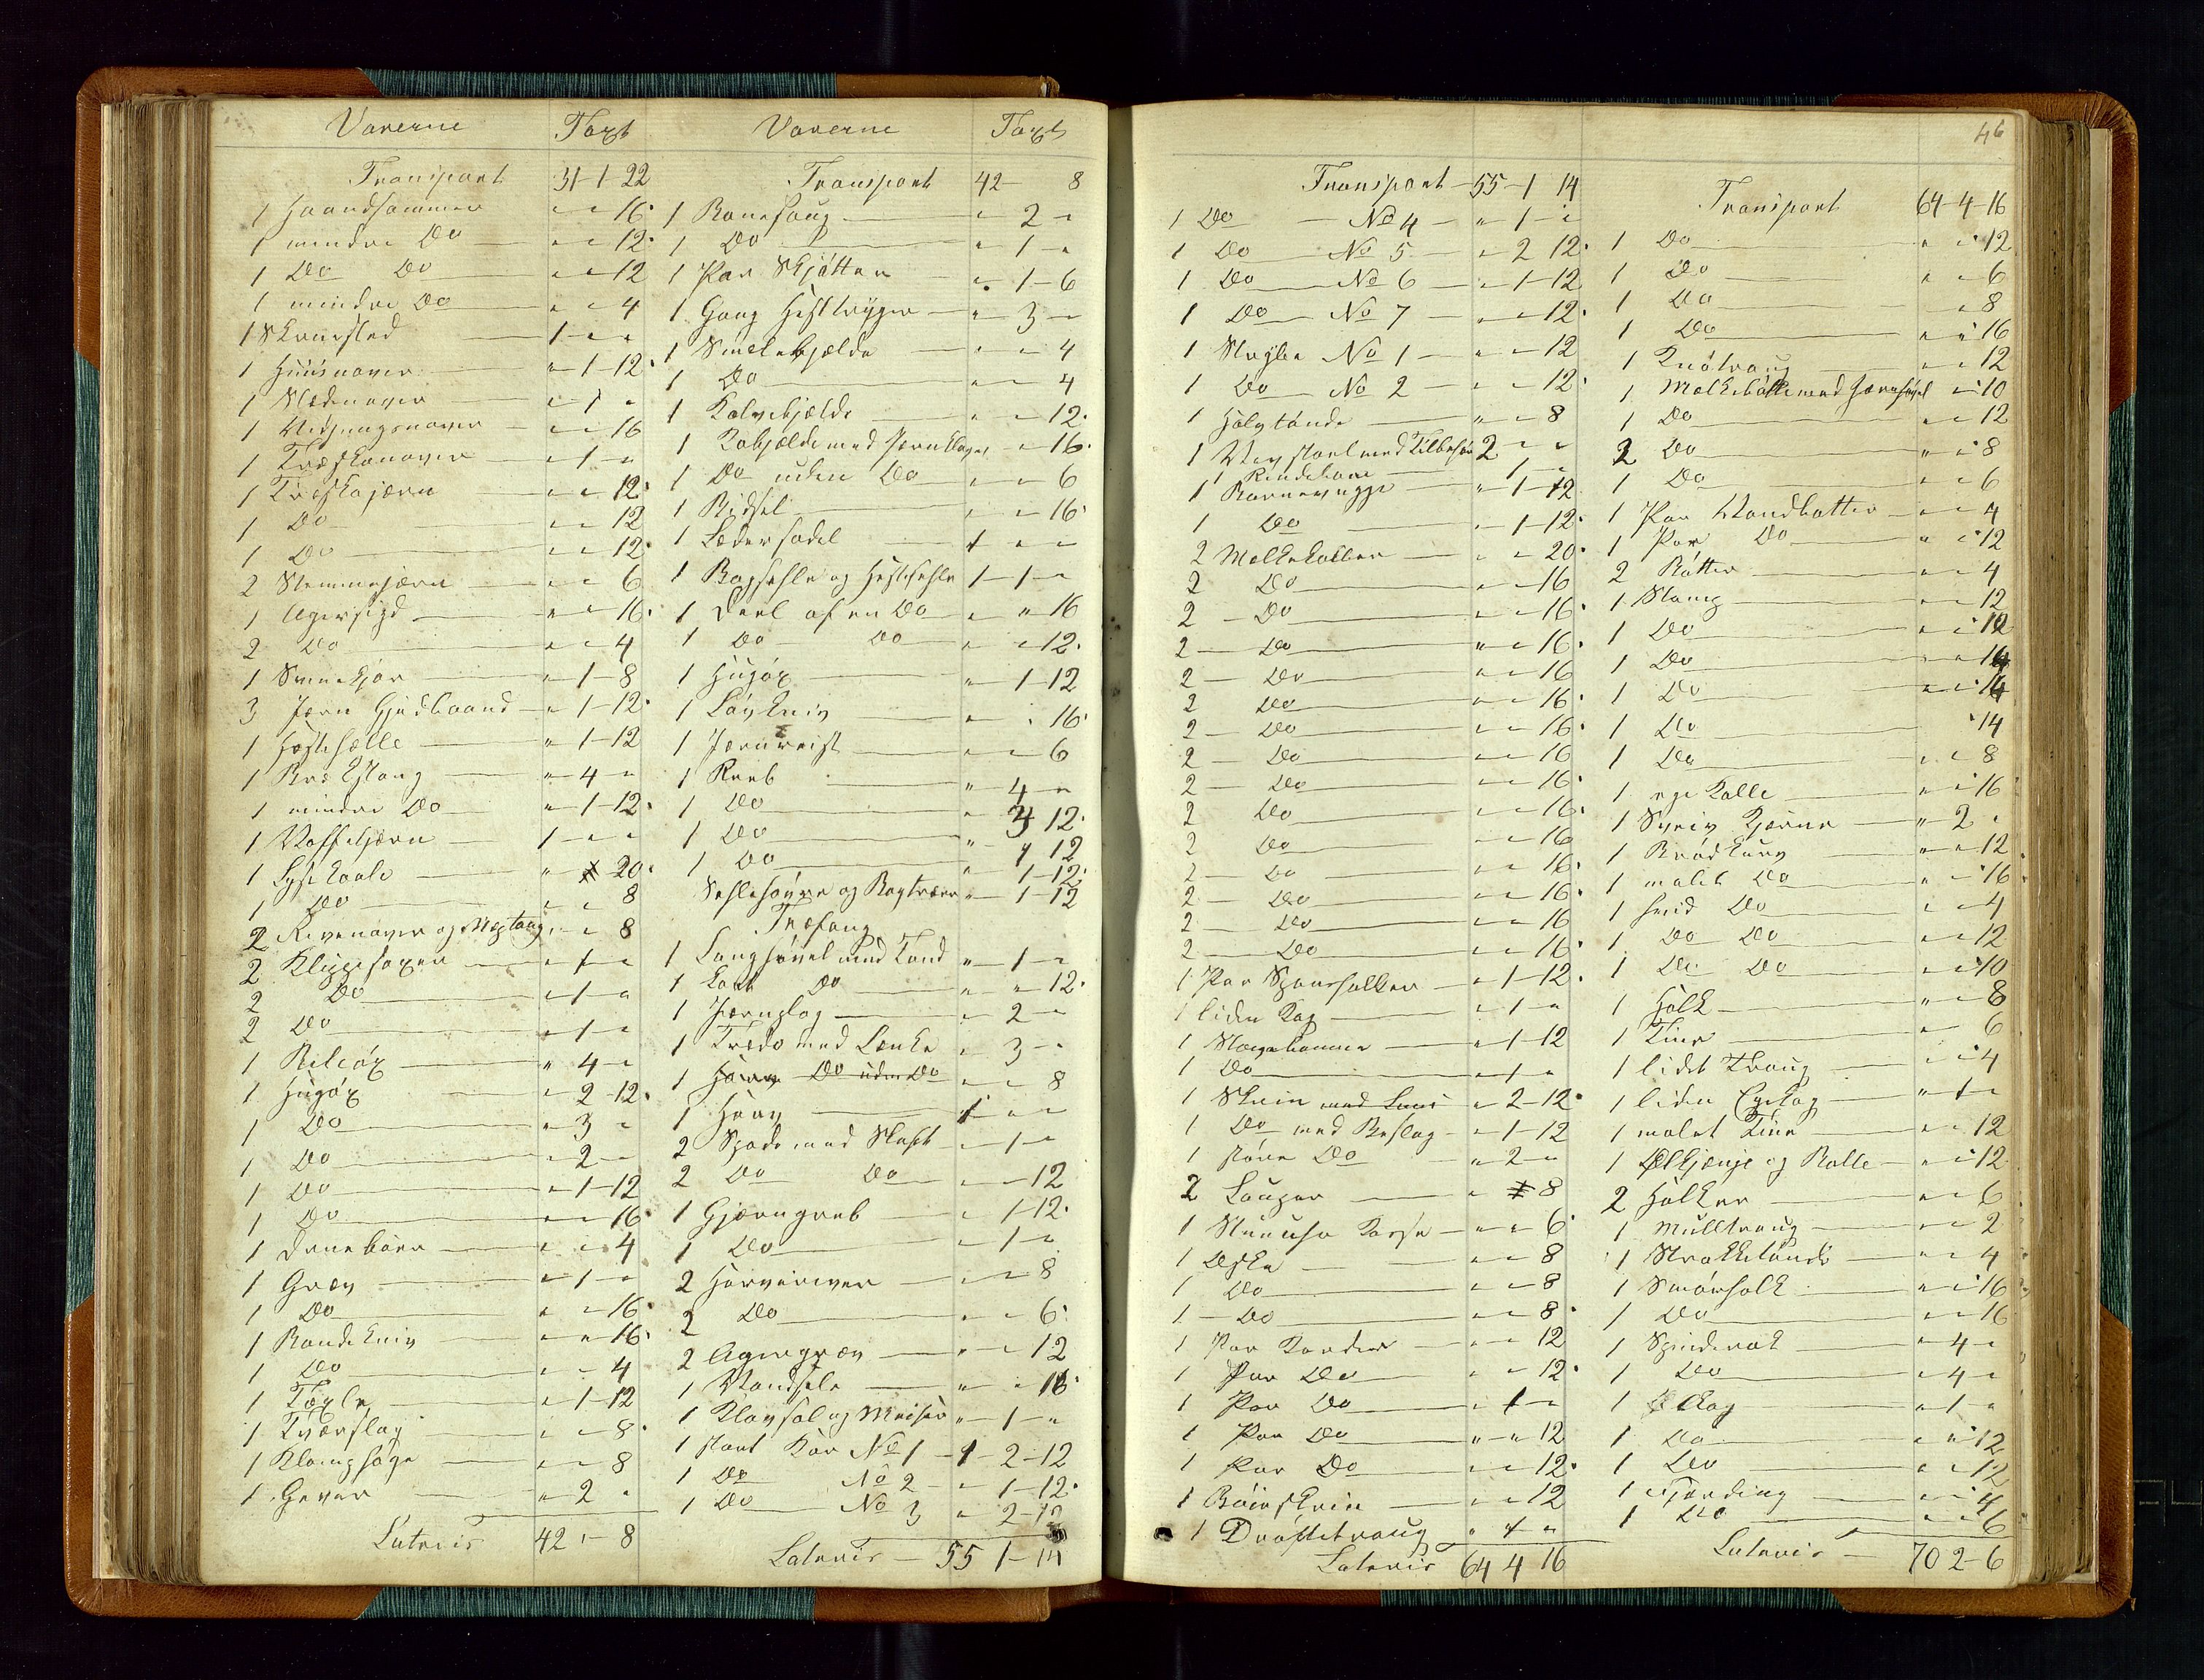 Varerne Taxt
Transport 31-1-22
1 Haandhammer " " 16
1 mindre Do " " 12
1 Do Do " " 12
1 mindre Do " " 4
1 Skruested 1 " "
1 Huusnaver " 1-12
1 Slædenaver " 1 "
1 " " 16
1 Træskonaver " 1 "
1 Træskojærn " " 12
1 Do " " 12
1 Do " " 12
2 Stemmejærn " " 6
1 Agersigd " " 16
2 Do " " 4
1 " 1-8
3 Jærn Gjedbaand " 1-12
1 Hestehælle " 1-12
1 " 4 "
1 mindre Do " 1-12
1 Vaffeljærn 1 " "
1 Lysekaale " " 20
1 Do " " 8
2 Rivenaver og " " 8
2 Klippesaxer " 1 "
2 Do " 1 "
2 Do " 1 "
1 Biløx " 4 "
1 Hugøx " 2-12
1 Do " 3 "
1 Do " 2 "
1 Do " 1-12
1 Do " " 16
1 " " 4
1 Græv " 1 "
1 Do " " 16
1 Bandekniv " " 16
1 Do " " 4
1 Texle " 1-12
1 Tværslag " " 8
1 " " 8
1 Gevær " 2 "
Lateris 42 " 8
Varerne Taxt
Transport 42- 8
1 " 2 "
1 Do " 1 "
1 Par Skjøtter " 1-6
1 Gang Hestbryger " 3 "
1 Smalebjælde " " 4
1 Do " " 4
1 Kalvebjælde " " 12
1 Kobjælde med Jærnklave " " 16
1 Do uden Do " " 6
1 Bidsel " " 16
1 Lædersadel 1 " "
1 Bagsehle og Hestesehle 1-1 "
1 Deel af en Do " " 16
1 Do Do " " 12
1 Hugøx " 1-12
1 Løvkniv " " 16
1 Jærnrist " " 6
1 Reeb " 4 "
1 Do " 3 12
1 Do " 1 12
1 Do " 1-12
Sehlehøvre og Bagtræer " 1-12
Træfang
1 Langhøvel med Tand " 1 "
1 kort Do " " 12
1 Jærnslag " 2 "
1 med Lænke " 3 "
1 Harv Do uden Do " " 8
1 Harv 1 " "
2 Spade med Skaft " 1 "
2 Do Do " " 12
1 Gjærngreb " 1-12
1 Do " 1 "
2 Harveriver " " 8
2 Do " " 6
2 Agergræv " " 12
1 Vandsele " " 16
1 Kløvsal og Meiser " 1 "
1 stort Kar No 1 1-2-12
1 Do No 2 " 1-12
1 Do No 3 " 2-12
Lateris 55 1-14
46
Transport 55-1 14
1 Do No 4 " 1 "
1 Do No 5 " 2 12
1 Do No 6 " 1-12
1 Do No 7 " " 12
1 No 1 " " 12
1 Do No 2 " " 12
1 Halvtønde " " 8
1 Vævstoel med Tilbehør 2 " "
1 Rendebom 1 "
1 Barnevugge " 1-12
1 Do " 1-12
2 Melkekoller " " 20
2 Do " " 16
2 Do " " 16
2 Do " " 16
2 Do " " 16
2 Do " " 16
2 Do " " 16
2 Do " " 16
2 Do " " 16
2 Do " " 16
2 Do " " 16
2 Do " " 16
2 Do " " 16
2 Do " " 16
2 Do " " 16
1 Par " 1-12
1 liden Kag " 1 "
1 " 1-12
1 Do " 1 "
1 Skrin med Laas " 2-12
1 Do med Beslag " 1-12
1 større Do " 2 "
2 Lauger " " 8
1 Kasse " " 6
1 Æske " " 8
1 Do " " 8
1 Do " " 8
1 Par Karder " " 12
1 Par Do " " 12
1 Par Do " 1 "
1 Par Do " " 12
1 Par Do " " 12
1 Bøieskrin " " 12
1 Drøftetraug " 1 "
Lateris 64 4 16
Transport 64-4-16
1 Do " " 12
1 Do " " 6
1 Do " 8
1 Do " " 16
1 Knøtraug " " 12
1 Melkebøtte med Jærnhøvel " 10
1 Do " " 12
2 Do " " 8
1 Do " " 6
1 Par Vandbøtter " " 4
1 Par Do " " 12
2 Bøtter " " 4
1 Stamp " " 12
1 Do " " 12
1 Do " " 14
1 Do " " 14
1 Do " 14
1 Do " " 8
1 Kolle " " 16
1 Kjærne " 2 "
1 Brødkurv " " 12
1 malet Do " " 16
1 hvid Do " " 4
1 Do Do " " 12
1 Do Do " " 10
1 Holk " " 8
1 Tine " 6
1 lidet Traug " " 4
1 liden " 1 "
1 malet Tine " " 12
1 Ølkjenge og Kolle " " 12
2 Holker " " 6
1 Mulltraug " " 2
1 Strokketønde " " 4
1 Smørholk " " 16
1 Do " " 16
1 Spinderok " 4 "
1 Do " 4 "
1 " 1 "
1 Do " " 12
1 Do " " 12
1 Fjerding " " 4
1 Do " " 6
Lateris 70 2-6